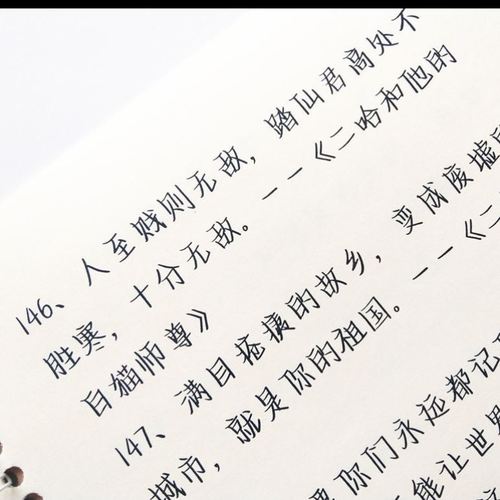 146、人至贱则无敌，踏仙君高处不
胜寒，十分无敌。——《二哈和他的
白猫师尊》
147、满目疮痍的故乡，变成废墟的
城市，就是你的祖国。——《二
你们永远都记
能让世界